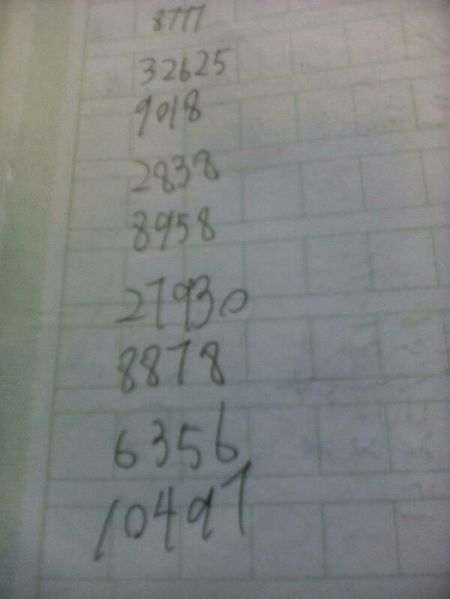 8777
32625
9018
2838
8958
27930
8878
6356
10497